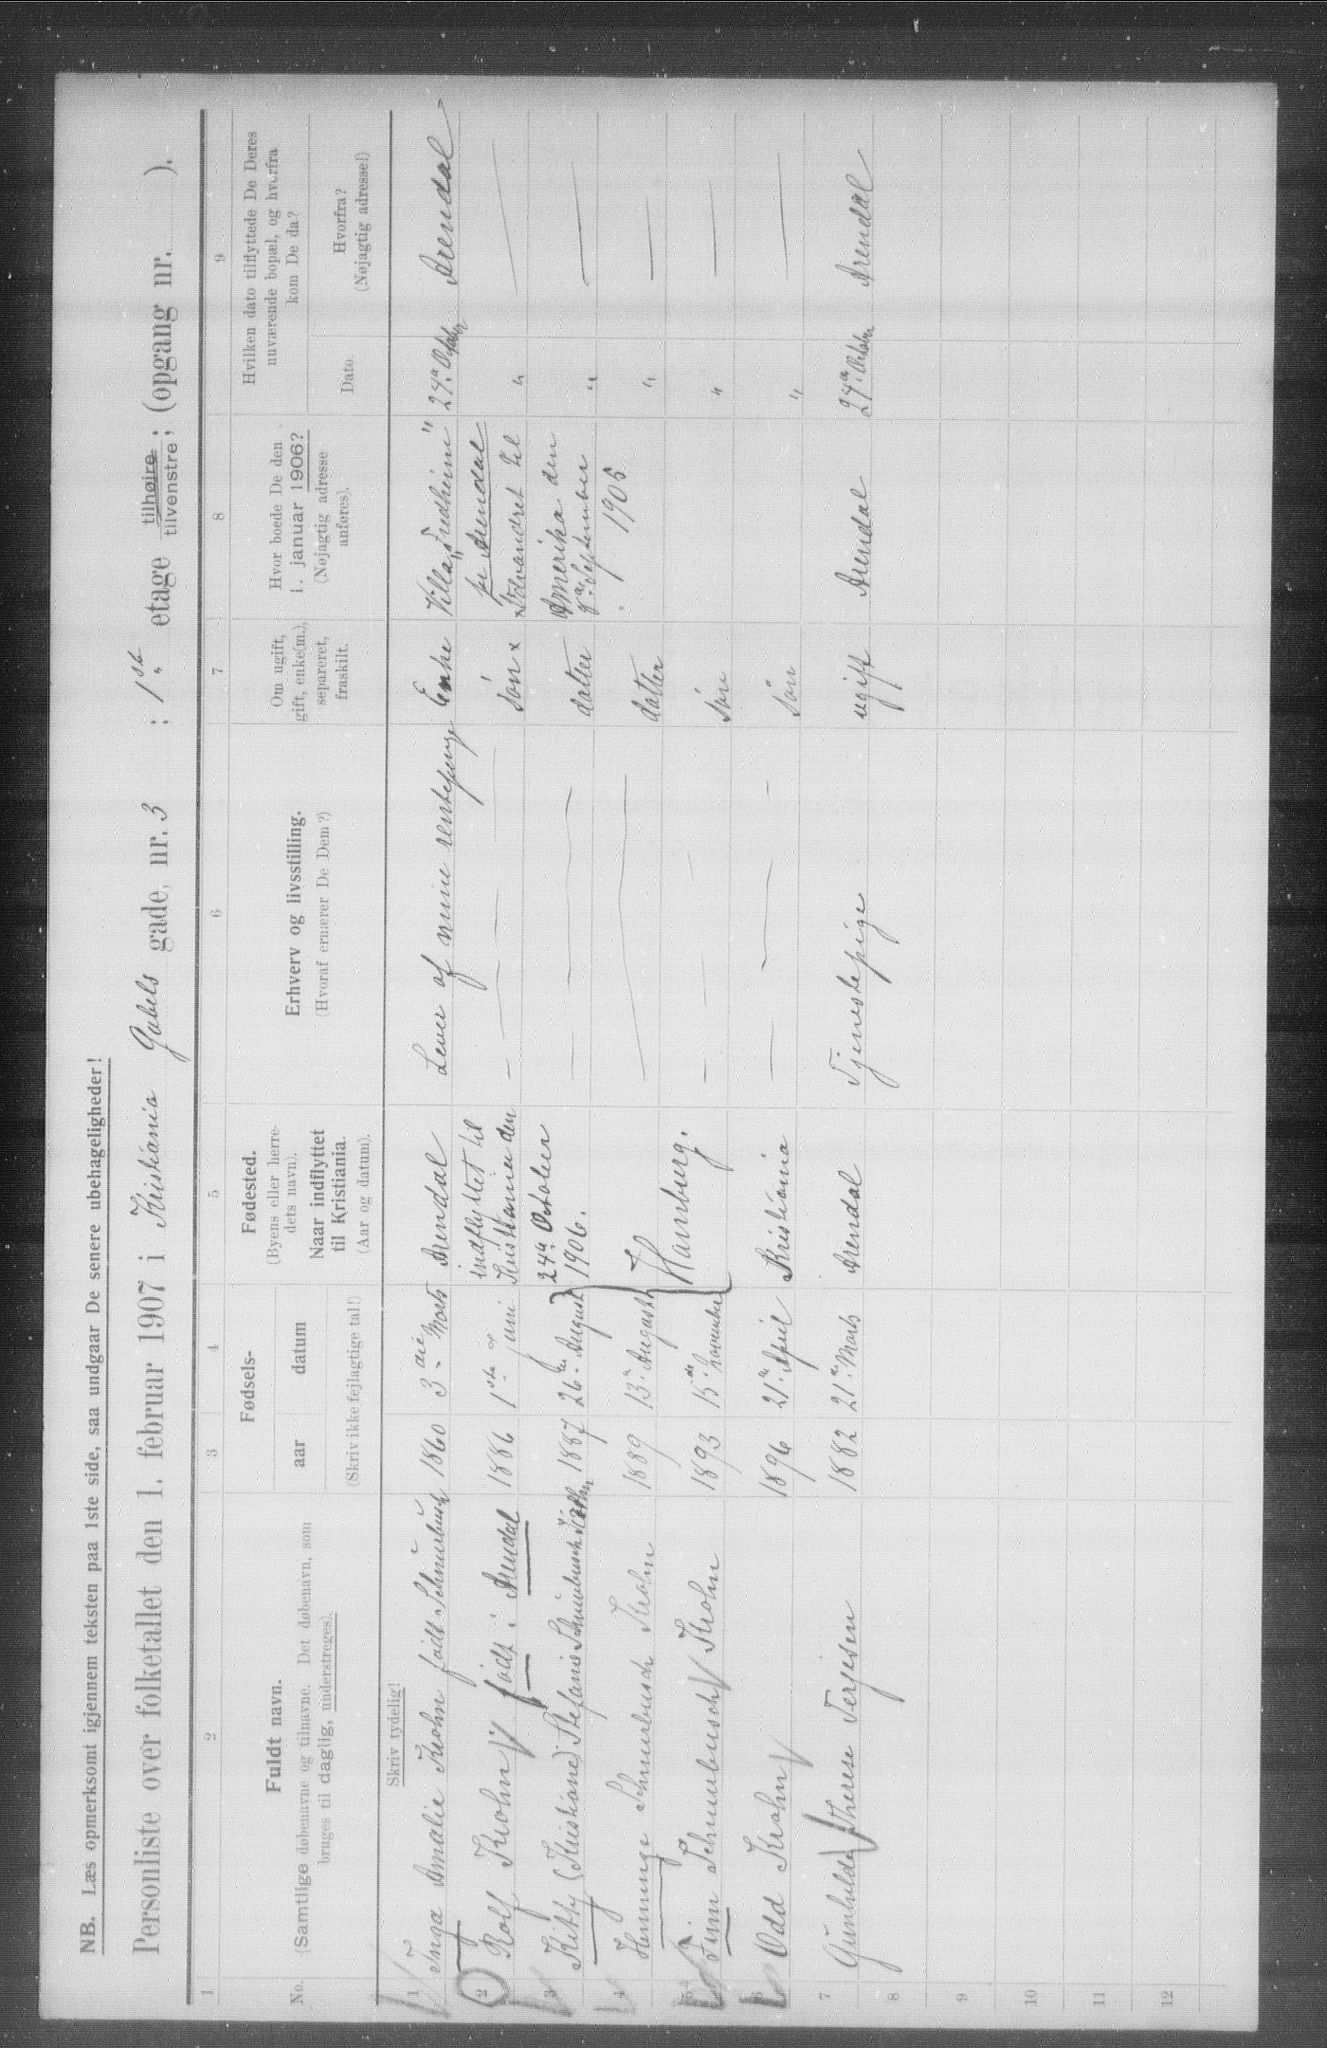 NB. Læs opmerksomt igjennem teksten paa 1ste side, saa undgaar De senere ubehageligheder!
Personliste over folketallet den 1. februar 1907 i Kristiania Gabels gade, nr. 3 ; 1ste etage tilhøire tilvenstre ; (opgang nr. ).
1 2 3 4 5 6 7 8 9
No.
Fuldt navn.
(Samtlige døbenavne og tilnavne. Det døbenavn, som
bruges til daglig, understreges).
Fødsels-
aar datum
(Skriv ikke fejlagtige tal!)
Fødested.
(Byens eller herre-
dets navn).
Naar indflyttet
til Kristiania.
(Aar og datum).
Erhverv og livsstilling.
(Hvoraf ernærer De Dem?)
Om ugift,
gift, enke(m.),
separeret,
fraskilt.
Hvor boede De den
1. januar 1906?
(Nøjagtig adresse
anføres).
Hvilken dato tilflyttede De Deres
nuværende bopæl, og hvorfra
kom De da?
Dato.
Hvorfra?
(Nøjagtig adresse!)
Skriv tydelig!
1 Inga Amalie Krohn født Schnurbusch 1860 3die Marts Arendal Lever af mine rentepenge Enke Villa "Fredheim" 24de Oktober Arendal
2 Rolf Krohn født i Arendal 1886 1ste juni indflyttet til Kristiania den søn x pr Arendal x Udvandret til "
3 Kitty (Kristiane) Stefanie Schnurbusch Krohn 1887 26de August 24de October 1906. datter Amerika den "
4 Henninge Schnurbusch Krohn 1889 13de August datter September 1905 "
5 Finn Schnurbusch Krohn 1893 15de November Hamburg. søn "
6 Odd Krohn 1896 21de April Kristiania søn "
7 Gunhilde Therese Terjesen 1882 21de Marts Arendal Tjenestepige ugift Arendal 24de Oktober Arendal
8
9
10
11
12